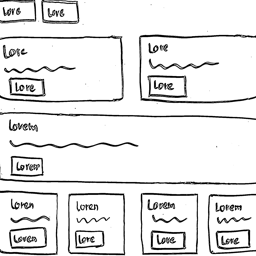 Lore Lore
Lore Lore
Lore Lore
Lorem
Lorem
Loren Loren Lorem Lorem
Lorem Lore Lore Lore